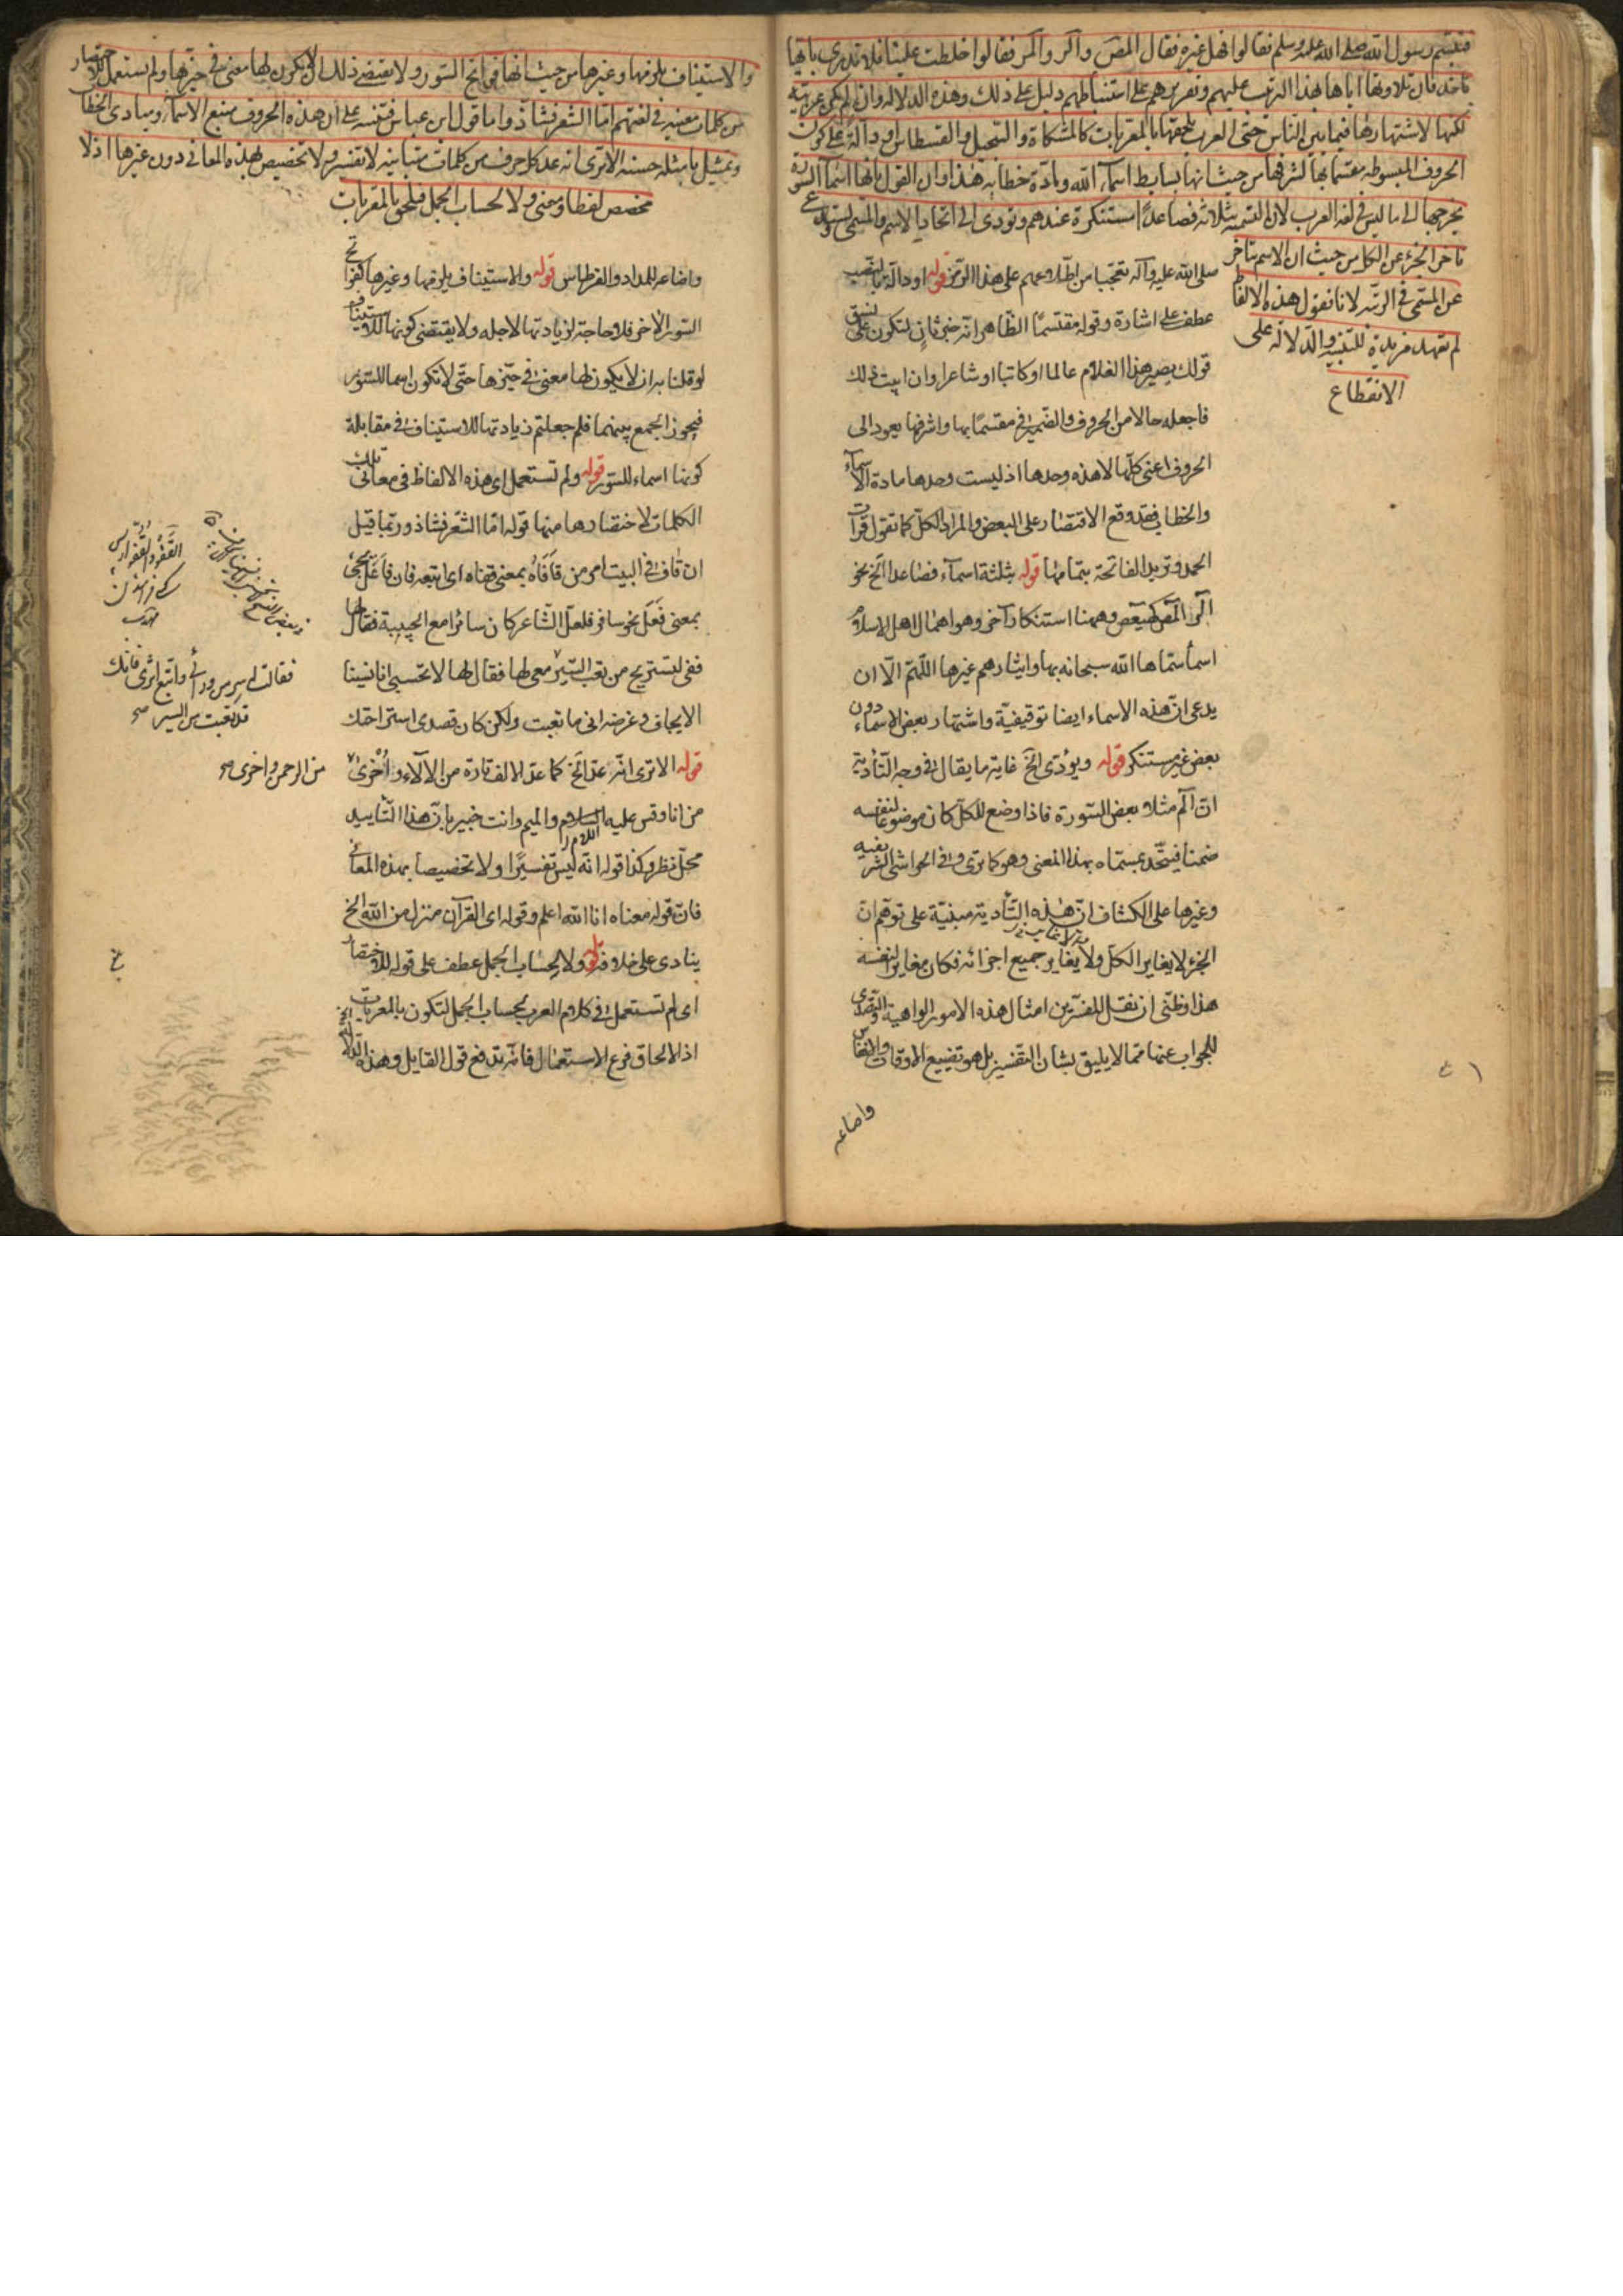 فتبسم رسول الله صلى الله عليه وسلم فقالوا فهل غيره فقال المص والر والمر فقالوا خلطت علينا فلا ندري بايها
ناخذ فان تلاوته اياها بهذا الترتيب عليهم وتقريرهم على استنباطهم دليل على ذلك وهذه الدلالة وان لم تكن عربية
لكنها لاشتهارها فيما بين الناس حتى العرب تلحقها بالمعربات كالمشكاة والسجيل والقسطاس او دالة على كون
الحروف المبسوطة مقسما بها لشرفها من حيث انها بسايط اسماء الله ومادة خطابه هذا وان القول بانها اسماء السورة
يخرجها الى ما ليس في لغة العرب لان التسمية بثلاثة فصاعدا مستنكرة عندهم وتودي الى اتحاد الاسم والمسمى وتستدعي
تاخر الجزء عن الكل من حيث ان الاسم يتاخر
عن المسمى في الرتبة لانا نقول هذه الالفاظ
لم تعهد مزيدة للتنبيه والدلالة على
الانقطاع
صلى الله عليه وآله تعجبا من اطلاعهم على هذا الرمز قوله او دالة بالنصب
عطف على اشارة وقوله مقتسما الظاهر انه خبر ثان لتكون على نسق
قولك يصير هذا الغلام عالما او كاتبا او شاعرا وان ابيت ذلك
فاجعله حالا من الحروف والضمير في مقتسما بها واشرفها يعود الى
الحروف اعني كلها لا هذه وحدها اذ ليست وحدها مادة الاسماء
والخطاب فقد وقع الاقتصار على البعض والمراد الكل كما تقول قرات
الحمد وتريد الفاتحة بتمامها قوله بثلثة اسماء فصاعدا الخ نحو
الر المص كهيعص وههنا استنكار آخر وهو اهمال اهل الاسلام
اسما سماها الله سبحانه بها وايثارهم غيرها اللهم الا ان
يدعى ان هذه الاسماء ايضا توقيفية واشتهار بعض الاسماء دون
بعض غير مستنكر قوله ويؤدى الخ غاية ما يقال في وجه التأدية
ان الم مثلا بعض السورة فاذا وضع للكل كان موضوعا لنفسه
ضمنا فيتحد بمسماه بهذا المعنى وهو كما ترى وفي الحواشي الشريفية
وغيرها على الكشاف ان هذه التأدية مبنية على توهم ان
الجزء لا يغاير الكل ولا يغاير جميع اجزائه فكان مغايرا لنفسه
هذا وظني ان نقل المفسرين امثال هذه الامور الواهية والتصدي
للجواب عنها مما لا يليق بشان التفسير بل هو تضييع الاوقات والانفاس
واضاعه
والاستيناف يلزمها وغيرها من حيث انها فواتح السور ولا يقتضي ذلك ان لا يكون لها معنى في حيزها ولم تستعمل للاختصار
من كلمات معينة في لغتهم اما الشعر فشاذ واما قول ابن عباس فتنبيه على ان هذه الحروف منبع الاسماء ومبادي الخطاب
وتمثيل بامثلة حسنة الا ترى انه عد كل حرف من كلمات متباينة لا تفسير ولا تخصيص لهذه المعاني دون غيرها اذ لا
مخصص لفظا ومعنى ولا لحساب الجمل فتلحق بالمعربات
واضاعه للمداد والقرطاس قوله والاستيناف يلزمها وغيرها كفواتح
السور الاخر فلا حاجة لزيادتها لاجله ولا يقتضي كونها للاستيناف
لو قلنا به ان لا يكون لها معنى في حيزها حتى لا تكون اسما للسور
فيجوز الجمع بينهما فلم جعلتم زيادتها للاستيناف في مقابلة
كونها اسماء للسور قوله ولم تستعمل اي هذه الالفاظ في معاني تلك
الكلمات لاختصارها منها قوله اما الشعر فشاذ وربما قيل
ان قاف في البيت امر من قافاه بمعنى قفاه اي اتبعه فان فاعل يجئ
بمعنى فعل نحو سافر فلعل الشاعر كان سائرا مع الحبيبة فقال لها
قفي لتستريح من تعب السير معي لها فقال لها لا تحسبي انا نسينا
الايجاف وغرضه اني ما تعبت ولكن كان قصدي استراحتك
قوله الا ترى انه عد الخ كما عد الالف تارة من الآلاء واخرى
من انا وقس عليه اللام والميم وانت خبير بان هذا التأييد
محل نظر وكذا قوله انه ليس تفسيرا ولا تخصيصا بهذه المعاني
فان قوله معناه انا الله اعلم وقوله اي القرآن منزل من الله الخ
ينادى على خلافه قوله ولا لحساب الجمل عطف على قوله للاختصار
اي لم تستعمل في كلام العرب لحساب الجمل لتكون بالمعربات
اذ الالحاق فرع الاستعمال فانه يندفع قول القايل وهذه الدلالة
فقالت له سر من ورائي واتبع اثري فانك
قد تعبت من السير صح
من الرحمن واخرى صح